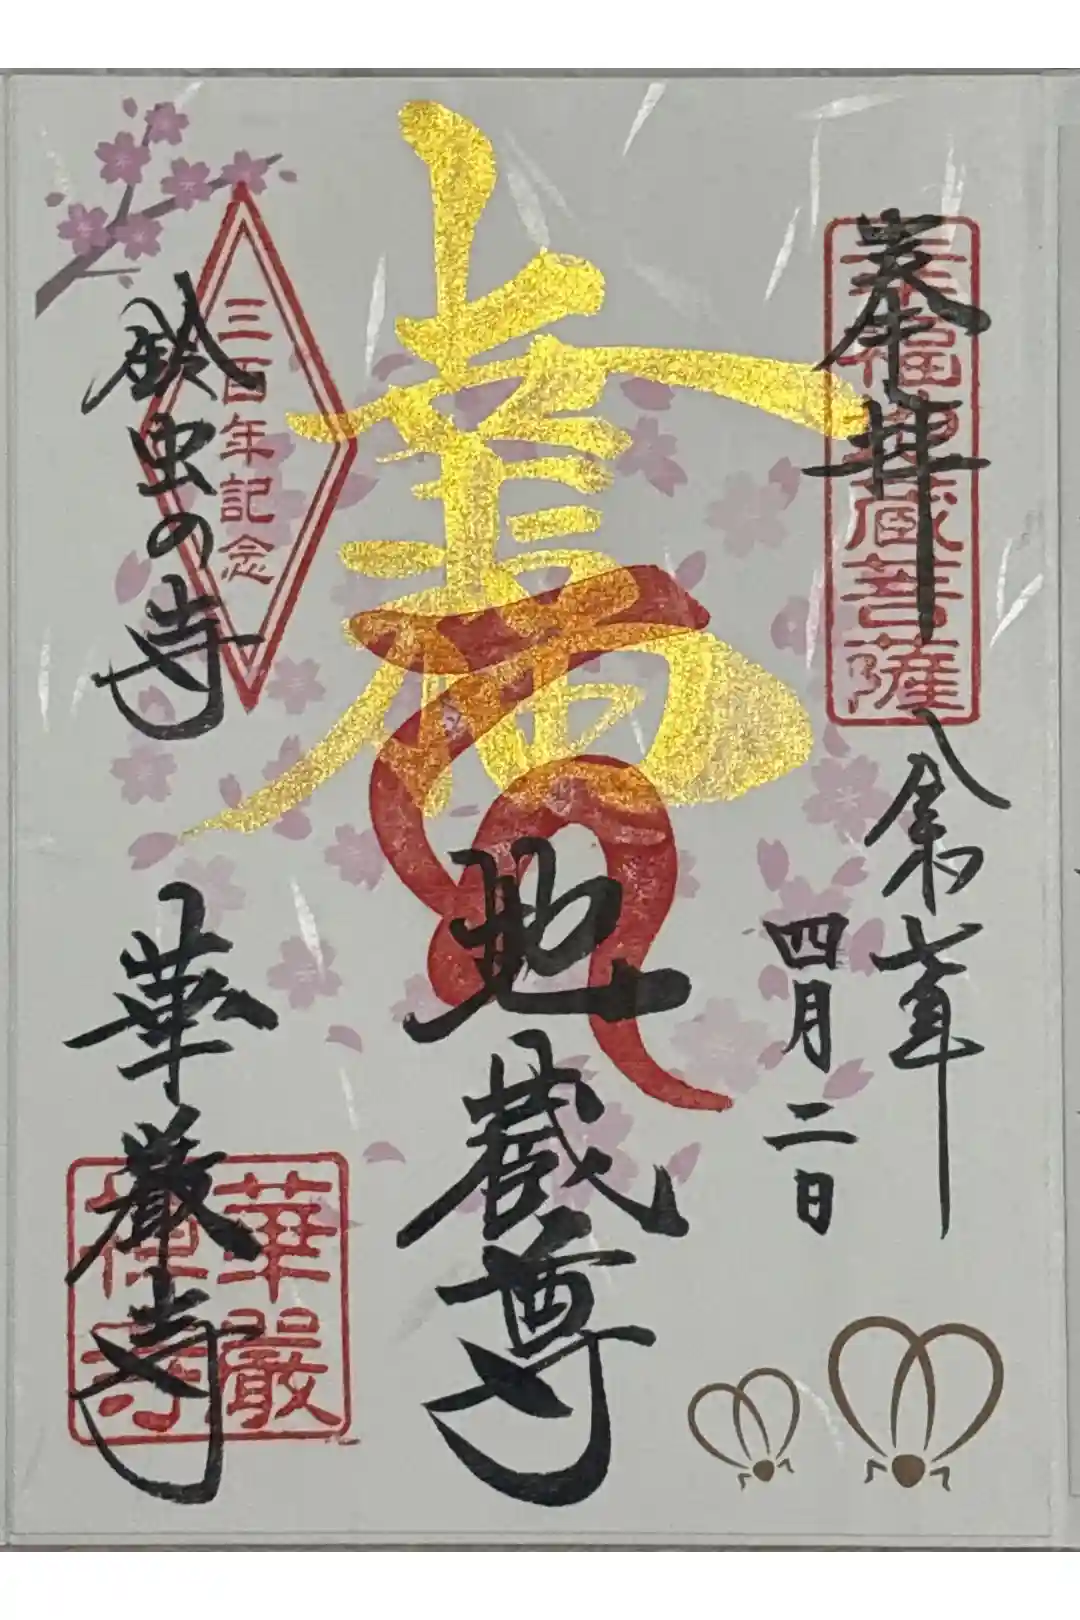 奉拝
幸福地蔵菩薩
令和七年
四月二日
地蔵尊
三百年記念
鈴虫の寺
華厳寺
華嚴禅寺